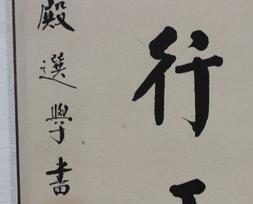 行
殿選學書